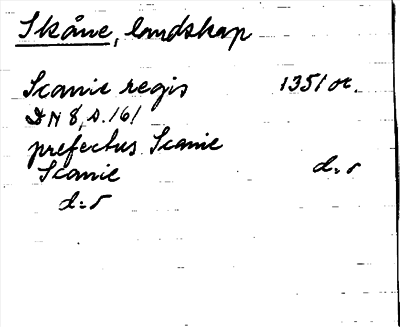 Skåne, landskap
Scanie regis 1351 or.
DN 8, s. 161
prefectus Scanie
Scanie d:o
d:o